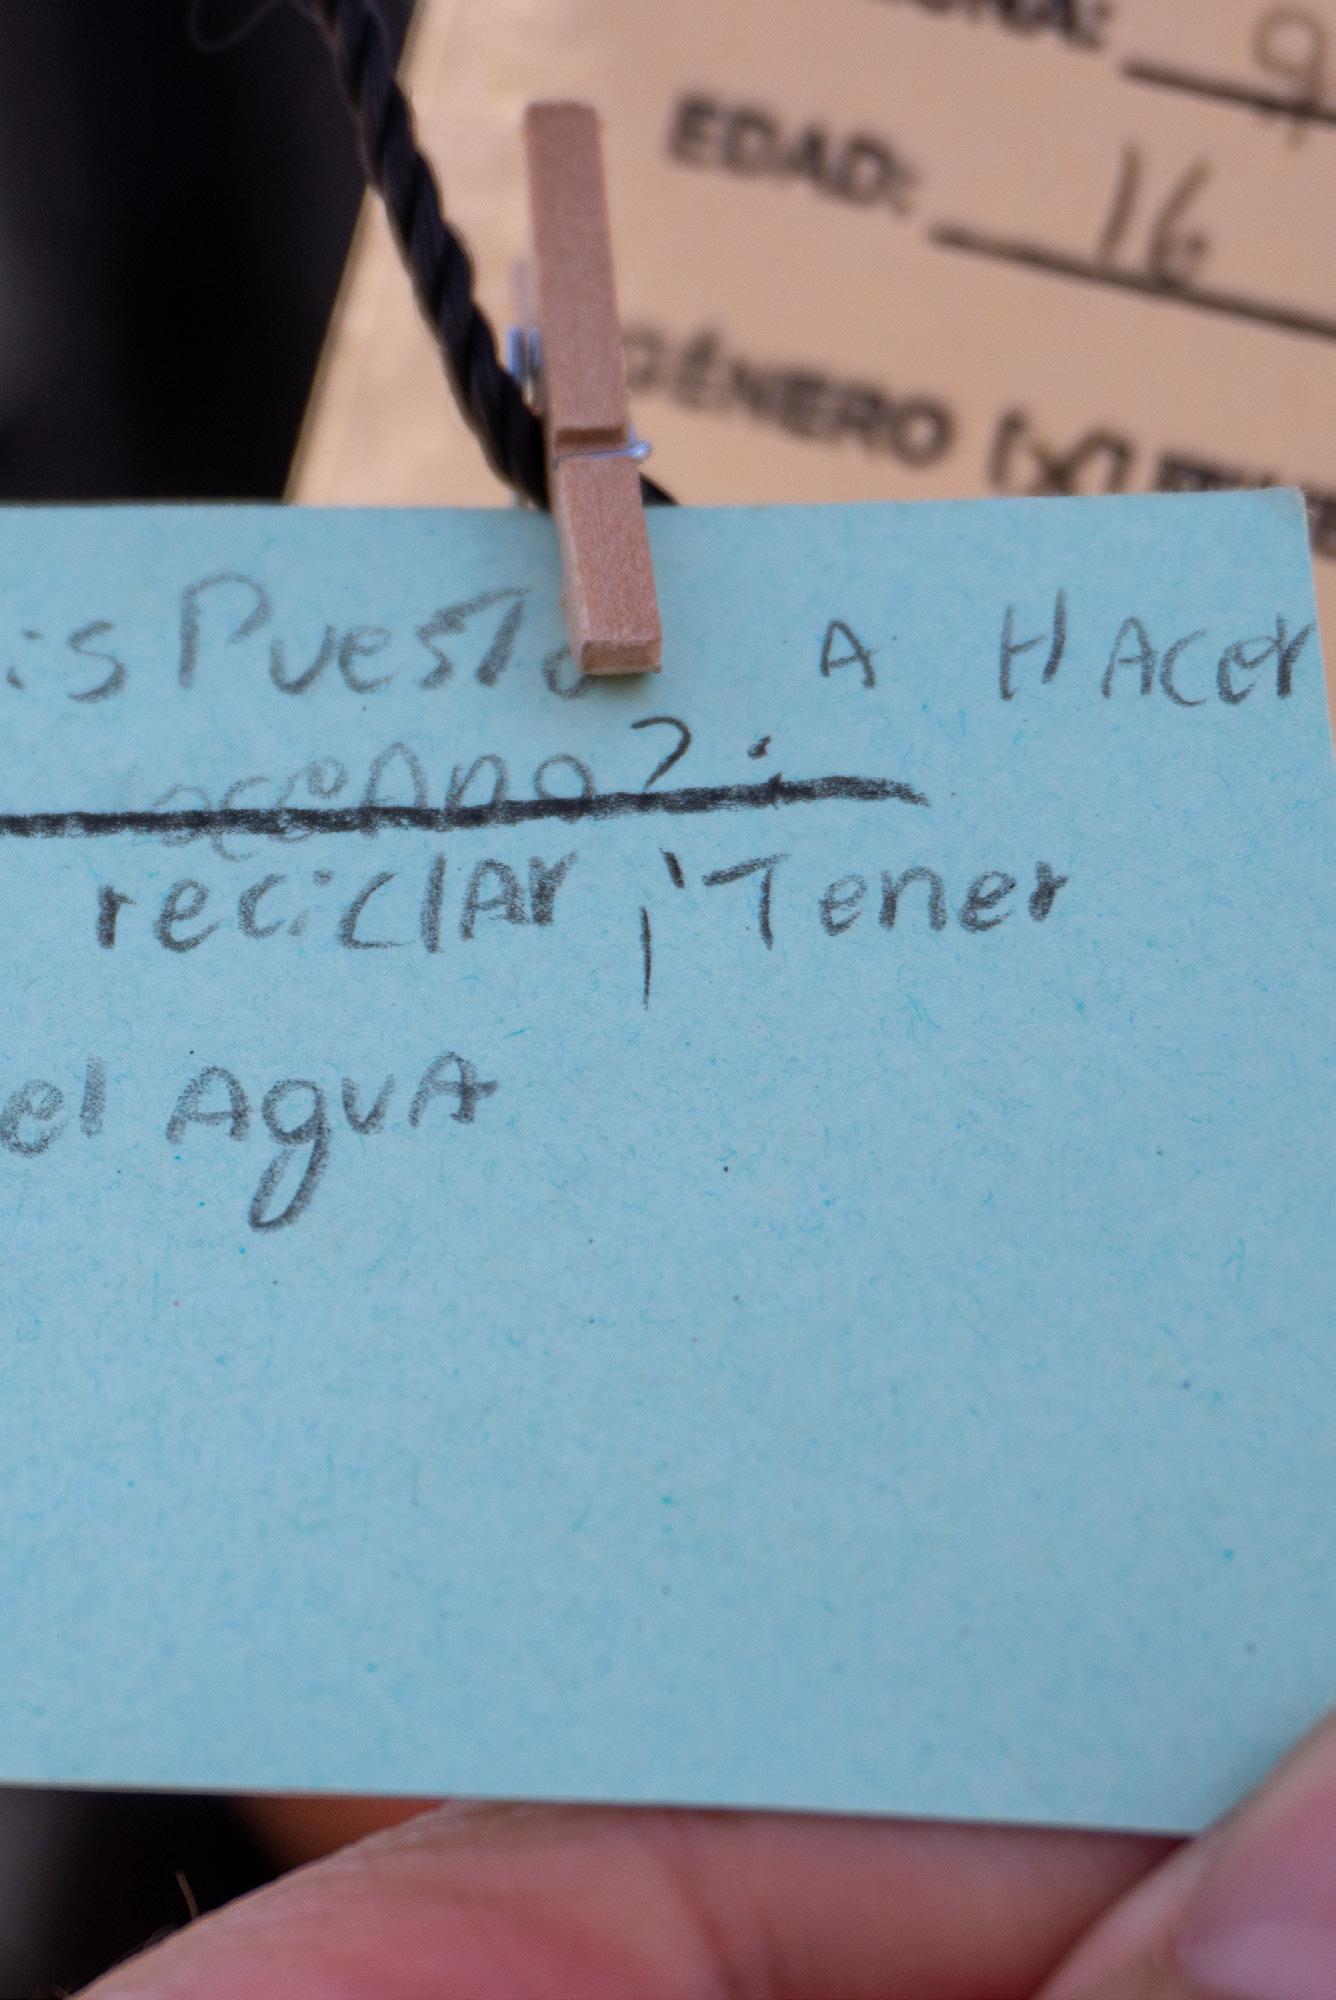 EDAD: 16
GÉNERO (x)
isPuesto A HAcer
occeAno?:
reciclAr, Tener
el AguA